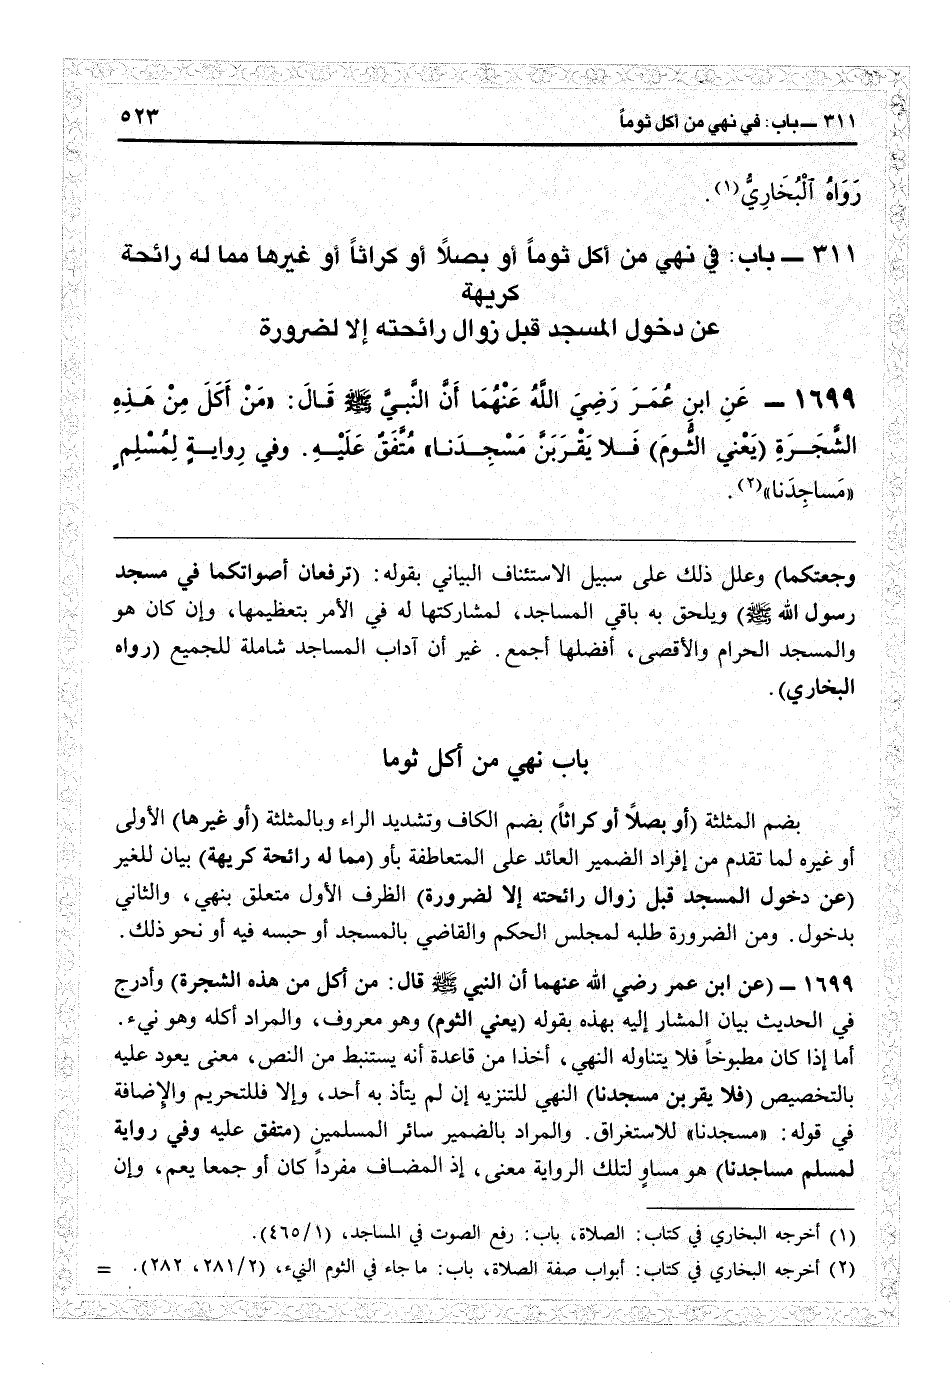 ٣١١ ـ باب: في نهي من أكل ثوماً
٥٢٣
رَوَاهُ الْبُخَارِيُّ(١).
٣١١ ـ باب: في نهي من أكل ثوماً أو بصلاً أو كراثاً أو غيرها مما له رائحة
كريهة
عن دخول المسجد قبل زوال رائحته إلا لضرورة
١٦٩٩ ـ عَنِ ابنِ عُمَرَ رَضِيَ اللَّهُ عَنْهُمَا أَنَّ النَّبِيَّ ﷺ قَالَ: «مَنْ أَكَلَ مِنْ هَذِهِ
الشَّجَرَةِ (يَعْني الثُّومَ) فَلا يَقْرَبَنَّ مَسْجِدَنا» مُتَّفَقٌ عَلَيْهِ. وفي رِوايةٍ لِمُسْلِمٍ
«مَساجِدَنا»(٢).
وجعتكما) وعلل ذلك على سبيل الاستئناف البياني بقوله: (ترفعان أصواتكما في مسجد
رسول الله ﷺ) ويلحق به باقي المساجد، لمشاركتها له في الأمر بتعظيمها، وإن كان هو
والمسجد الحرام والأقصى، أفضلها أجمع. غير أن آداب المساجد شاملة للجميع (رواه
البخاري).
باب نهي من أكل ثوما
بضم المثلثة (أو بصلاً أو كراثاً) بضم الكاف وتشديد الراء وبالمثلثة (أو غيرها) الأولى
أو غيره لما تقدم من إفراد الضمير العائد على المتعاطفة بأو (مما له رائحة كريهة) بيان للغير
(عن دخول المسجد قبل زوال رائحته إلا لضرورة) الظرف الأول متعلق بنهي، والثاني
بدخول. ومن الضرورة طلبه لمجلس الحكم والقاضي بالمسجد أو حبسه فيه أو نحو ذلك.
١٦٩٩ ـ (عن ابن عمر رضي الله عنهما أن النبي ﷺ قال: من أكل من هذه الشجرة) وأدرج
في الحديث بيان المشار إليه بهذه بقوله (يعني الثوم) وهو معروف، والمراد أكله وهو نيء.
أما إذا كان مطبوخاً فلا يتناوله النهي، أخذا من قاعدة أنه يستنبط من النص، معنى يعود عليه
بالتخصيص (فلا يقربن مسجدنا) النهي للتنزيه إن لم يتأذ به أحد، وإلا فللتحريم والإضافة
في قوله: «مسجدنا» للاستغراق. والمراد بالضمير سائر المسلمين (متفق عليه وفي رواية
لمسلم مساجدنا) هو مساوٍ لتلك الرواية معنى، إذ المضاف مفرداً كان أو جمعا يعم، وإن
(١) أخرجه البخاري في كتاب: الصلاة، باب: رفع الصوت في المساجد، (٤٦٥/١).
(٢) أخرجه البخاري في كتاب: أبواب صفة الصلاة، باب: ما جاء في الثوم النيء، (٢٨١/٢، ٢٨٢). =